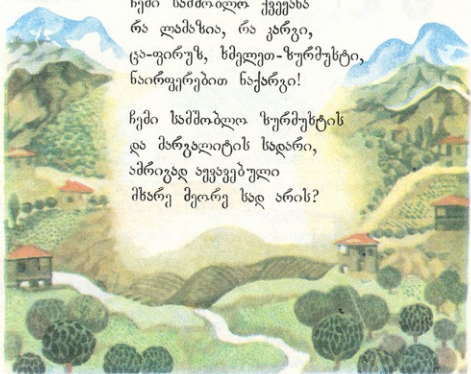 ჩემი სამშობლო ქვეყანა
რა ლამაზია, რა კარგი,
ცა-ფირუზ, ხმელეთ-ზურმუხტი,
ნაირფერებით ნაქარგი!
ჩემი სამშობლო ზურმუხტის
და მარგალიტის სადარი,
ამრიგად აყვავებული
მხარე მეორე სად არის?